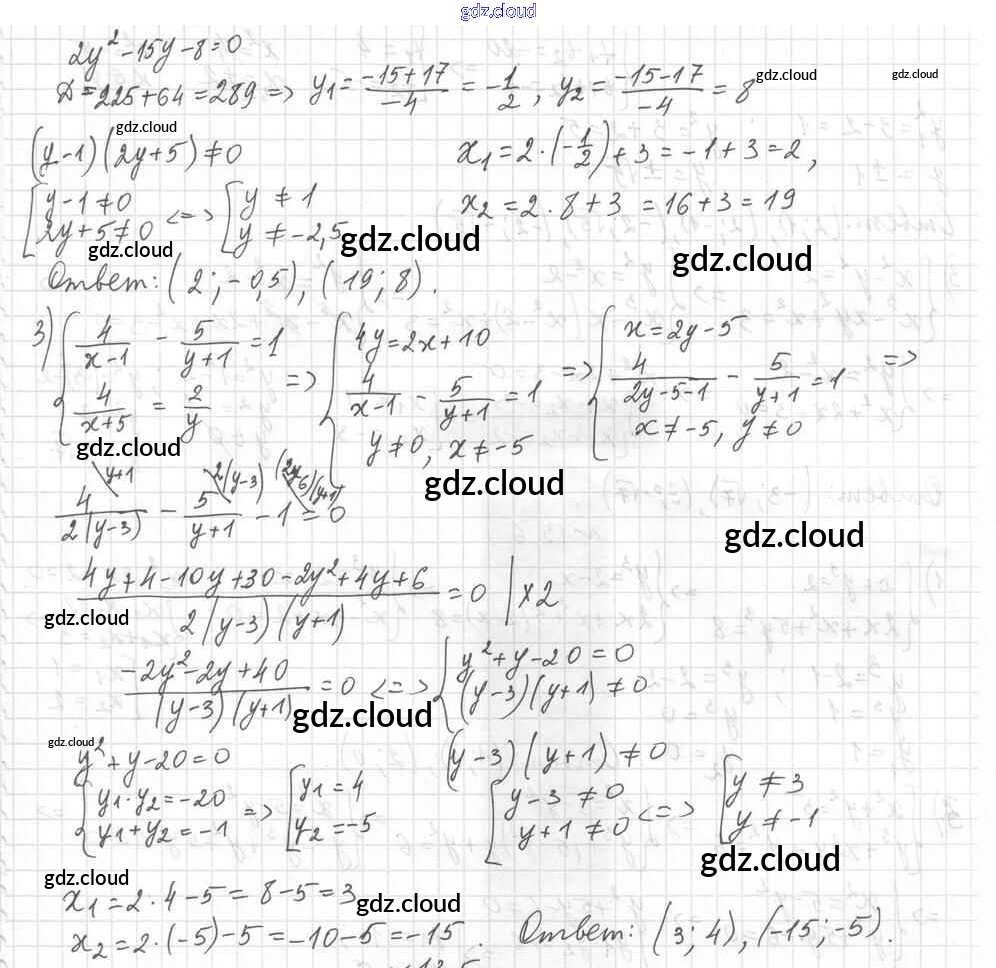 gdz.cloud
2y² - 15y - 8 = 0
D = 225 + 64 = 289 => y₁ = (-15+17)/(-4) = -1/2, y₂ = (-15-17)/(-4) = 8
gdz.cloud
gdz.cloud
gdz.cloud
(y-1)(2y+5) ≠ 0
x₁ = 2·(-1/2) + 3 = -1 + 3 = 2,
[y-1 ≠ 0 <=> [y ≠ 1
2y+5 ≠ 0 y ≠ -2,5
x₂ = 2·8 + 3 = 16 + 3 = 19
gdz.cloud
gdz.cloud
gdz.cloud
Ответ: (2; -0,5), (19; 8).
3) {4/(x-1) - 5/(y+1) = 1 => {4y = 2x + 10 => {x = 2y - 5 =>
4/(x+5) = 2/y 4/(x-1) - 5/(y+1) = 1 4/(2y-5-1) - 5/(y+1) = 1
y ≠ 0, x ≠ -5 x ≠ -5, y ≠ 0
gdz.cloud
gdz.cloud
gdz.cloud
y+1 2(y-3) (2y-6)(y+1)
4/(2(y-3)) - 5/(y+1) - 1 = 0
(4y + 4 - 10y + 30 - 2y² + 4y + 6)/(2(y-3)(y+1)) = 0 | ×2
gdz.cloud
(-2y² - 2y + 40)/((y-3)(y+1)) = 0 <=> {y² + y - 20 = 0
(y-3)(y+1) ≠ 0
gdz.cloud
gdz.cloud
y² + y - 20 = 0
(y-3)(y+1) ≠ 0
{y₁·y₂ = -20 => [y₁ = 4
y₁+y₂ = -1 y₂ = -5
[y-3 ≠ 0 <=> [y ≠ 3
y+1 ≠ 0 y ≠ -1
gdz.cloud
gdz.cloud
x₁ = 2·4 - 5 = 8 - 5 = 3
gdz.cloud
x₂ = 2·(-5) - 5 = -10 - 5 = -15. Ответ: (3; 4), (-15; -5).